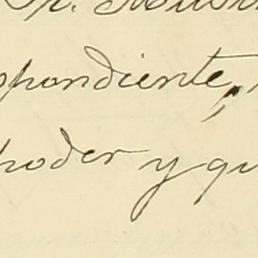 Sr.
pondiente,
poder y qu